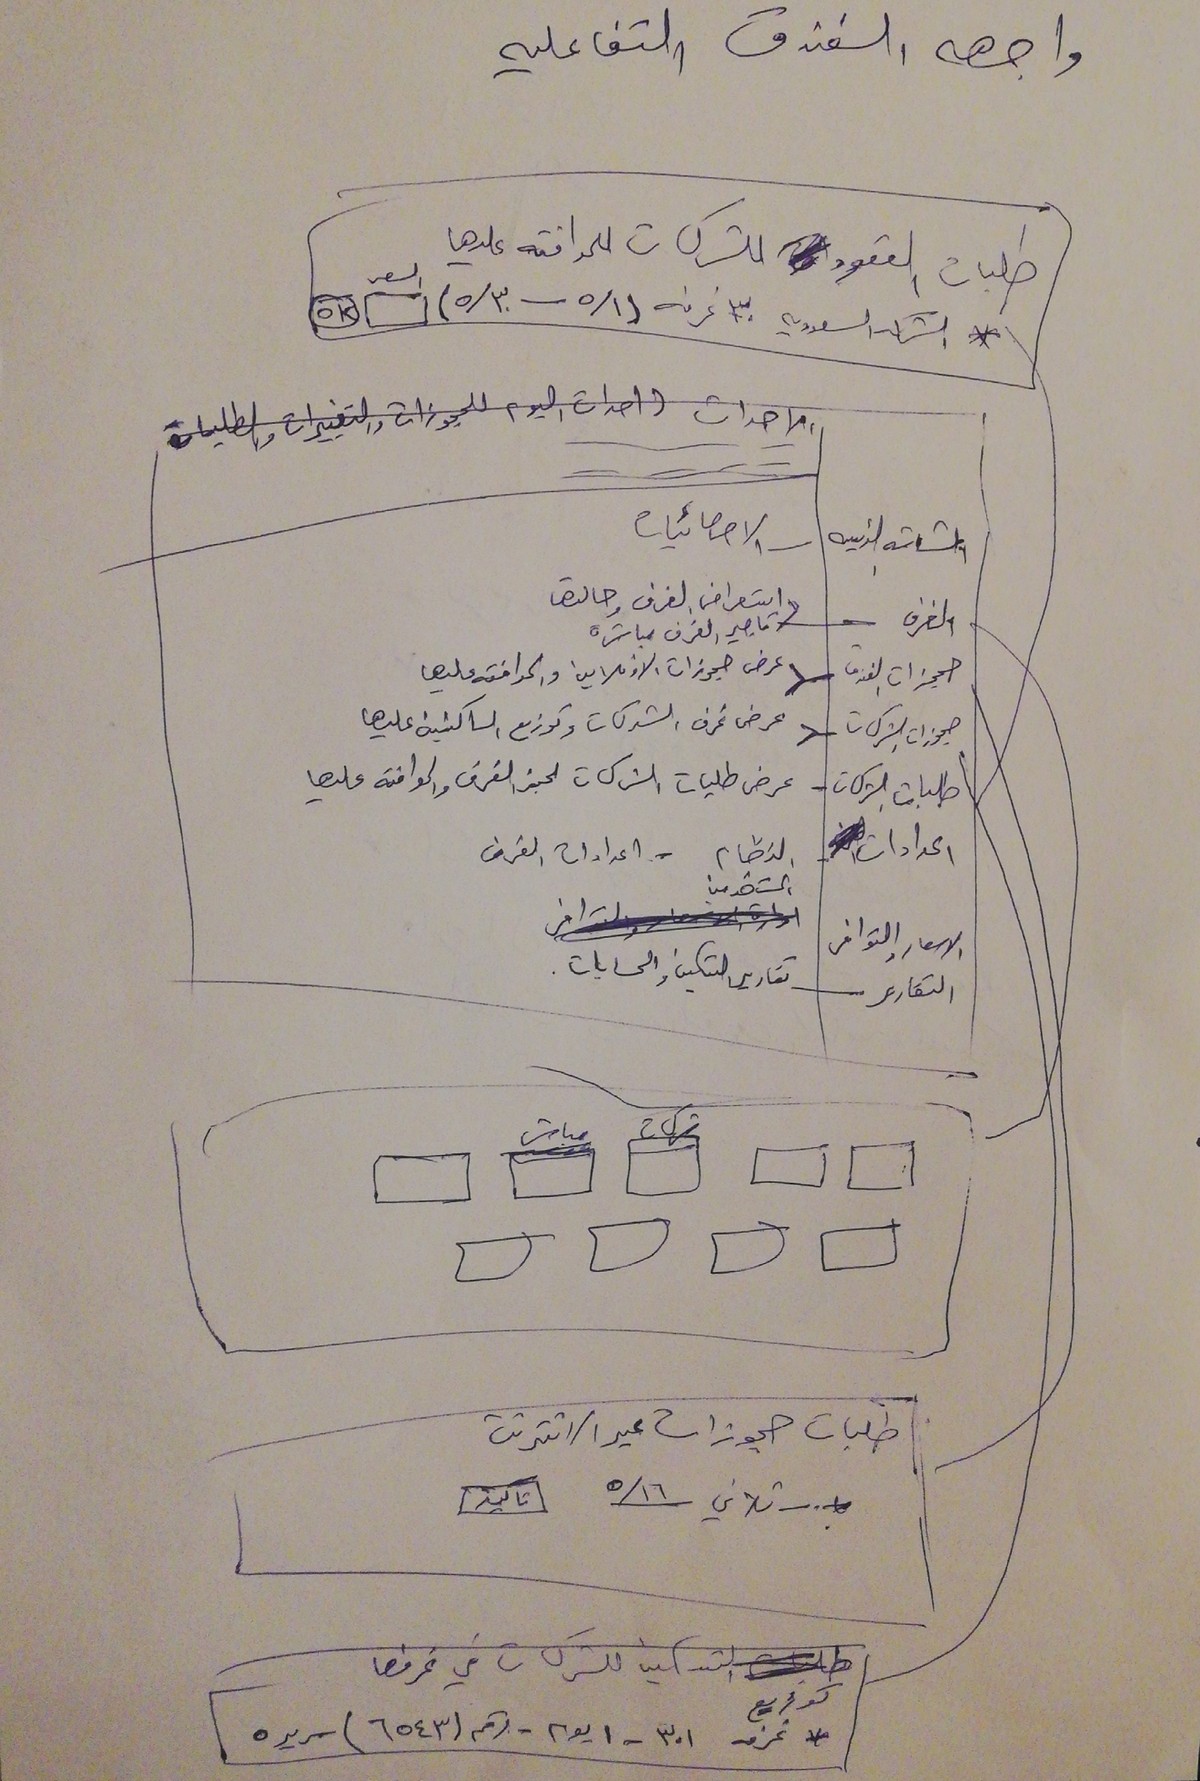 واجهه الفندق التفاعليه
طلبات العقود للشركات للموافقه عليها
السعر
* الشركه السعوديه ٣٠ غرفه (٥/١ — ٥/٣٠) OK
الاحداث (احداث اليوم للحجوزات والتغييرات والطلبات
الشاشه الرئيسيه – الاحصائيات
الغرف – استعراض الغرف وحالتها
تاجير الغرف مباشرة
حجوزات الفندق – عرض حجوزات الاونلاين والموافقه عليها
حجوزات الشركات – عرض غرف الشركات وتوزيع الساكنين عليها
طلبات الشركات – عرض طلبات الشركات لحجز الغرف والموافقه عليها
اعدادات – النظام – اعدادات الغرف
المستخدمين
الاسعار والتوافر
التقارير – تقارير التسكين والحسابات.
شركات مباشر
طلبات حجوزات عبر الانترنت
ثلاثي ٥/١٦ تاكيد
طلبات التسكين للشركات في غرفها
توزيع
* غرفه ٣٠١ – ١ يوم – رقم (٦٥٤٣) سرير ٥